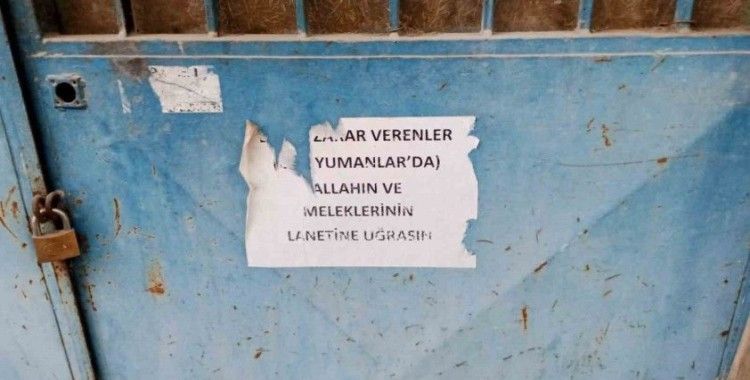 ZARAR VERENLER
YUMANLAR'DA)
ALLAHIN VE
MELEKLERİNİN
LANETİNE UĞRASIN